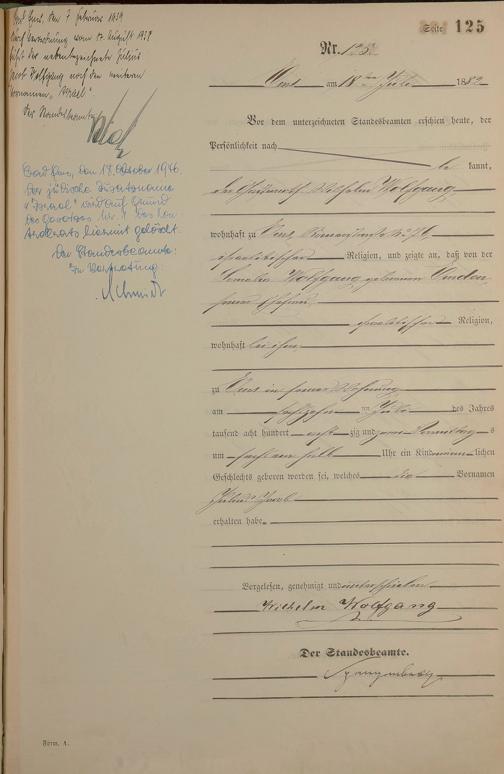 Bad Ems, den 7. Februar 1939
Durch Verordnung vom 17. August 1938
führt der nebenbezeichnete Julius
Jacob Wolfgang noch den weiteren
Vornamen „Israel“.
Der Standesbeamte
Bad Ems, den 18. Oktober 1946.
Der jüdische Zusatzname
"Israel" wird auf Grund
des Gesetzes Nr. 1 des Kon-
trollrats hiermit gelöscht.
Der Standesbeamte:
In Vertretung
Schmidt
Seite 125
Nr. 125
Ems am 18ten Juli 1882
Vor dem unterzeichneten Standesbeamten erschien heute, der
Persönlichkeit nach
be kannt,
der Wilhelm Wolfgang
wohnhaft zu Ems,
israelitischer Religion, und zeigte an, daß von der
Wolfgang geborenen Linden
seiner Ehefrau
israelitischer Religion,
wohnhaft bei ihm
zu Ems in seiner Wohnung
am sechszehnten Juli des Jahres
tausend acht hundert acht zig und zwei Vormittags
um Uhr ein Kind männlichen
Geschlechts geboren worden sei, welches die Vornamen
Julius Jacob
erhalten habe.
Vorgelesen, genehmigt und unterschrieben
Wilhelm Wolfgang
Der Standesbeamte.
Spangenberg
Form. A.